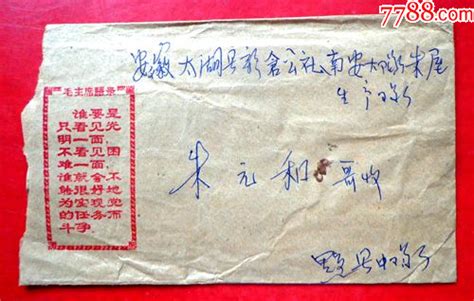 7788.com
安徽 太湖县新仓公社南安大队朱屋
生产队
毛主席語录
谁要是
只看见光
明一面,
不看见困
难一面,
谁就会不
能很好地
为实现党
的任务而
斗争
朱元和 哥收
县中